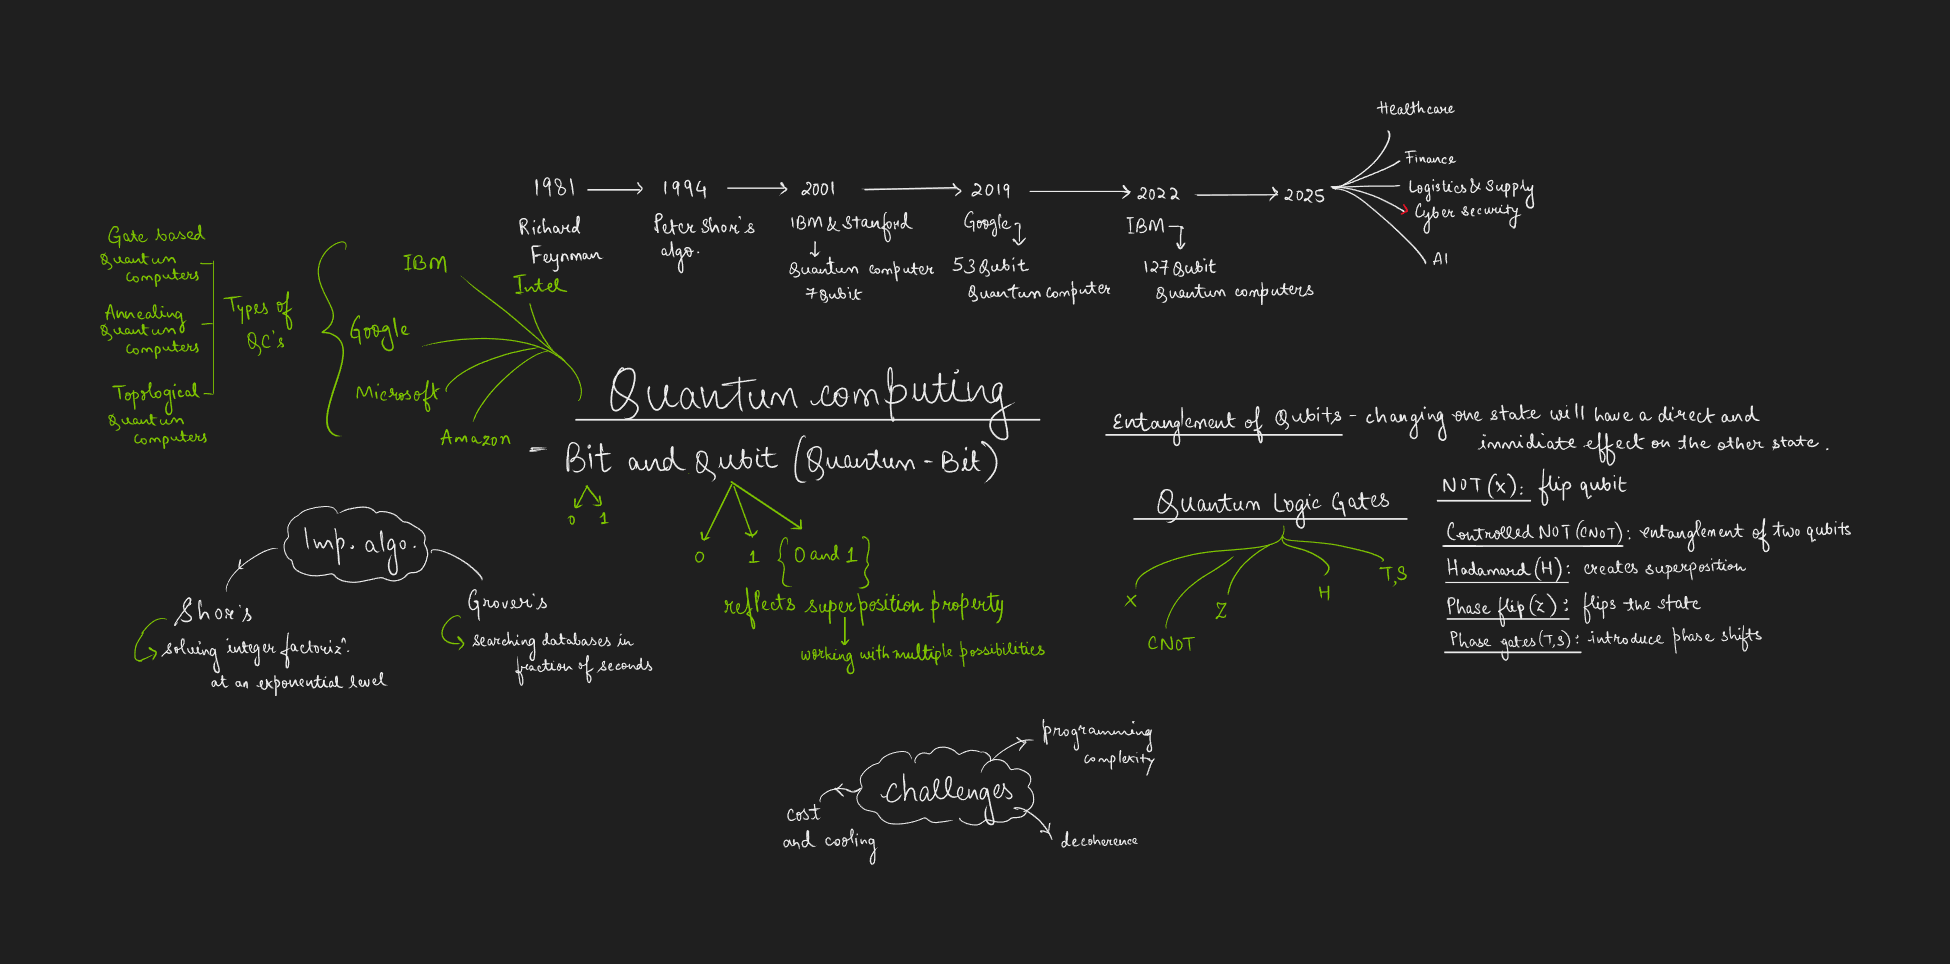 Healthcare
Finance
Logistics & Supply
Cyber security
AI
1981
1994
2001
2019
2022
2025
Richard
Feynman
Peter Shor's
algo.
IBM & Stanford
Quantum computer
7 Qubit
Google
53 Qubit
Quantum computer
IBM
127 Qubit
Quantum computers
Gate based
Quantum
computers
Annealing
Quantum
computers
Topological
Quantum
computers
Types of
QC's
IBM
Intel
Google
Microsoft
Amazon
Quantum computing
- Bit and Qubit (Quantum-Bit)
0 1
0 1 {0 and 1}
reflects superposition property
working with multiple possibilities
Entanglement of Qubits - changing one state will have a direct and
immidiate effect on the other state.
Quantum Logic Gates
X
CNOT
Z
H
T,S
NOT (X): flip qubit
Controlled NOT (CNOT): entanglement of two qubits
Hadamard (H): creates superposition
Phase flip (Z): flips the state
Phase gates (T,S): introduce phase shifts
Imp. algo.
Shor's
solving integer factorizn.
at an exponential level
Grover's
searching databases in
fraction of seconds
challenges
programming
complexity
cost
and cooling
decoherence